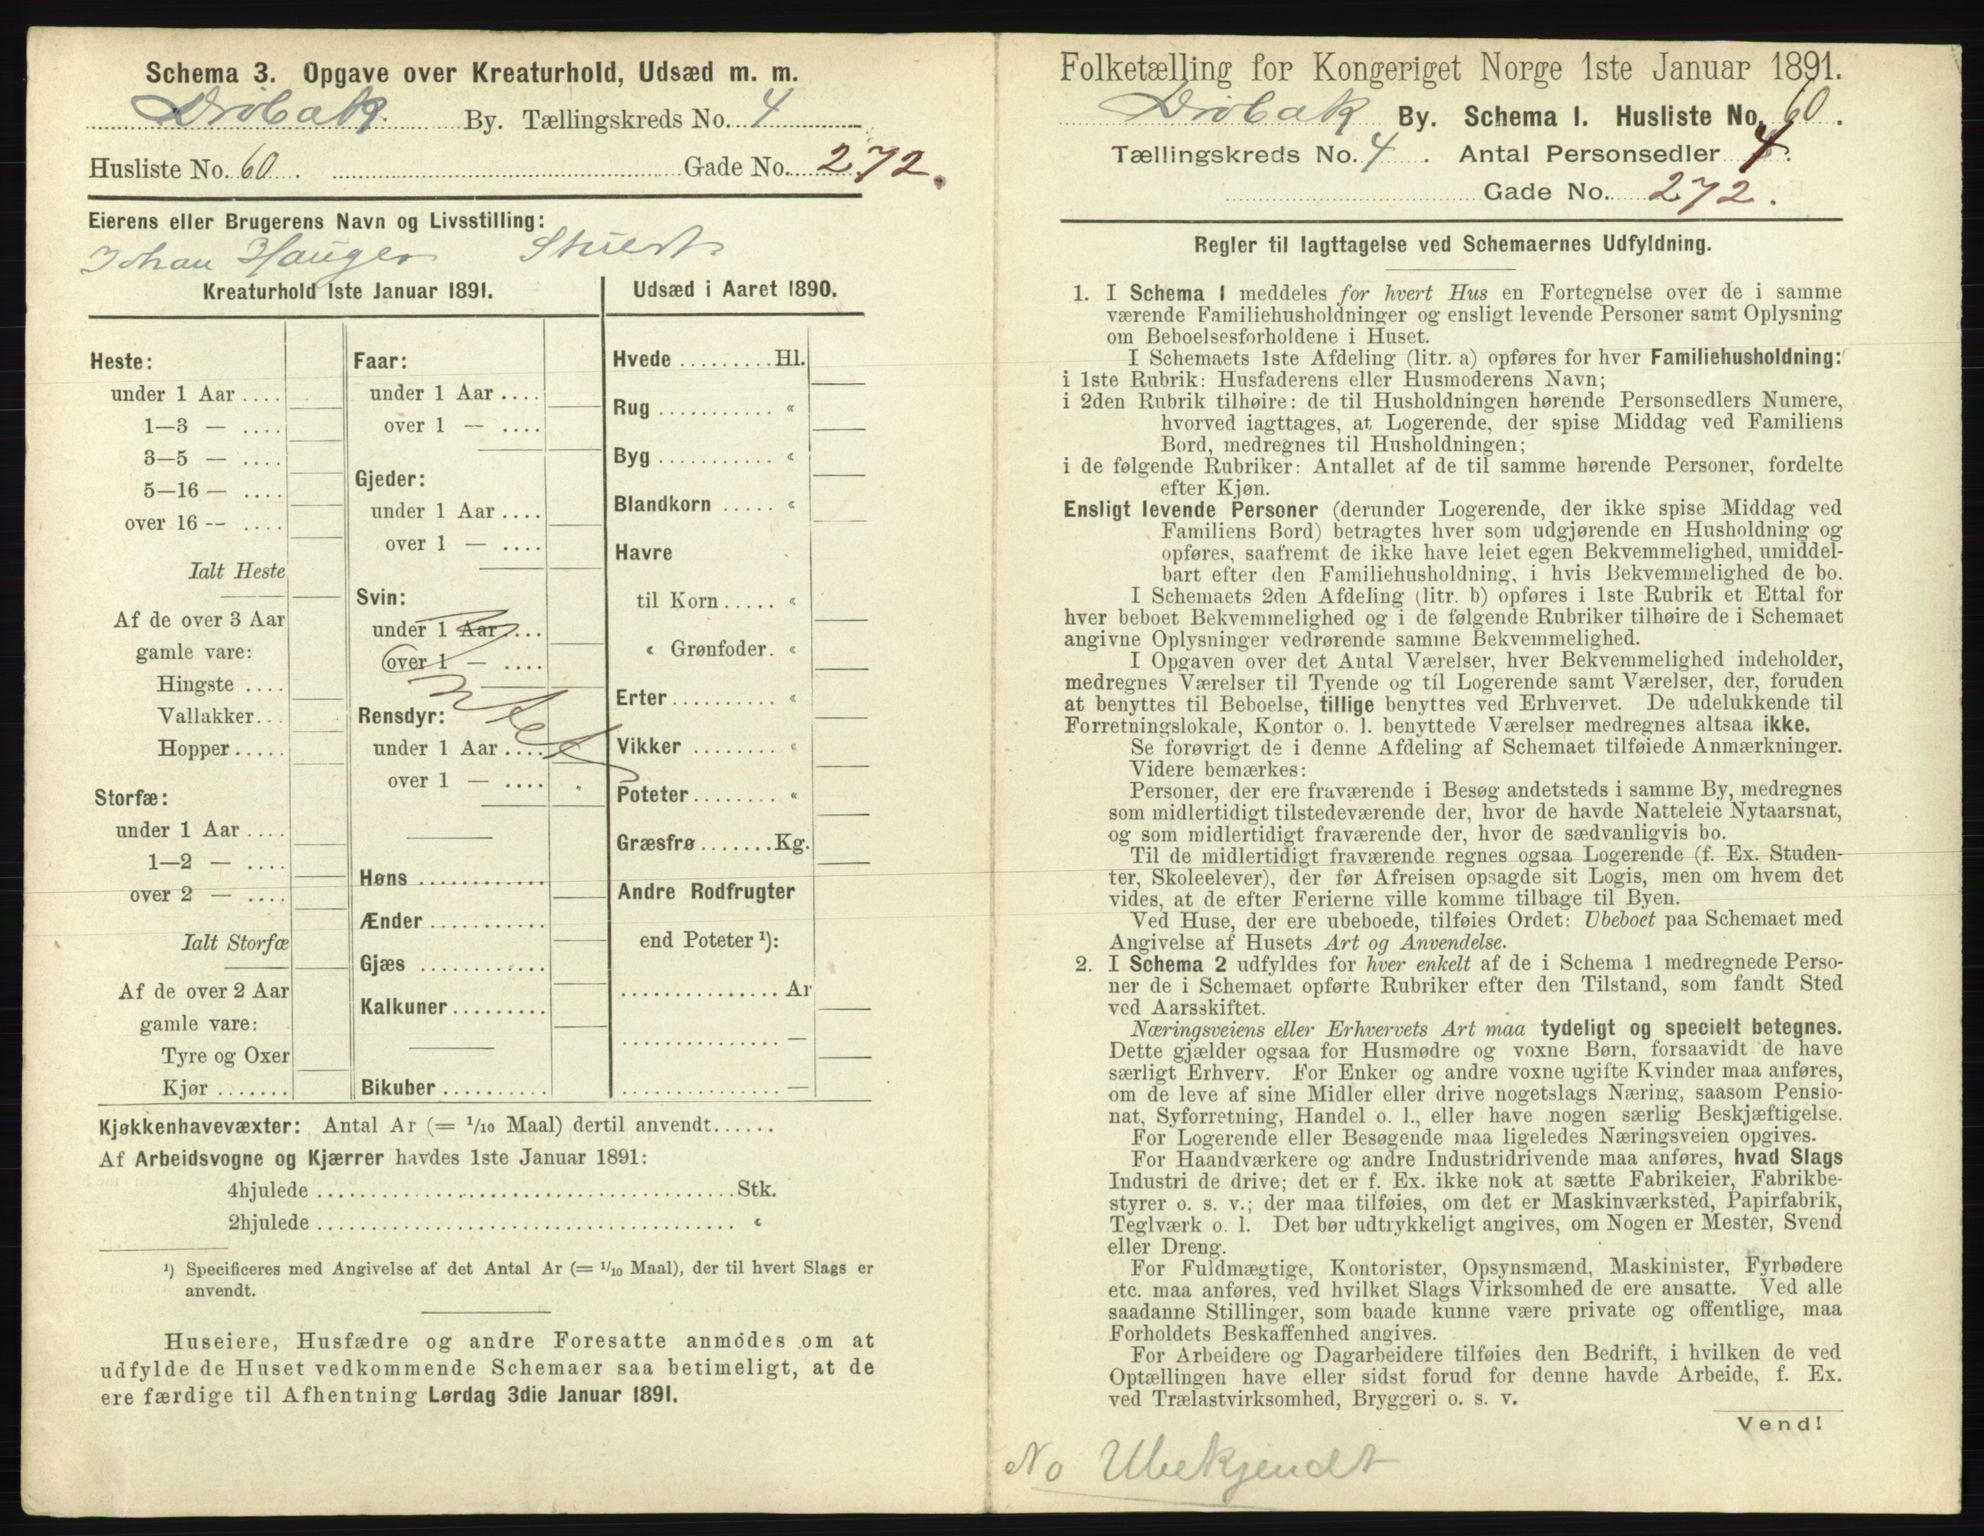 Schema 3. Opgave over Kreaturhold, Udsæd m. m.
Drøbak. By. Tællingskreds No. 4
Husliste No. 60. Gade No. 272.
Eierens eller Brugerens Navn og Livsstilling:
Johan Hauger Stuert
Kreaturhold 1ste Januar 1891.
Heste:
under 1 Aar ....
1—3 — ....
3—5 — ....
5—16 — ....
over 16 -- ....
Ialt Heste
Af de over 3 Aar
gamle vare:
Hingste ....
Vallakker...
Hopper.....
Storfæ:
under 1 Aar ....
1—2 — ....
over 2 — ....
Ialt Storfæ
Af de over 2 Aar
gamle vare:
Tyre og Oxer
Kjør .......
Faar:
under 1 Aar ....
over 1 — ....
Gjeder:
under 1 Aar ....
over 1 — ....
Svin:
under 1 Aar ....
over 1 — ....
Rensdyr:
under 1 Aar ....
over 1 — ....
Høns ............
Ænder ............
Gjæs ............
Kalkuner.........
Bikuber..........
Udsæd i Aaret 1890.
Hvede .........Hl.
Rug ........... «
Byg ........... «
Blandkorn ..... «
Havre
til Korn..... «
« Grønfoder. «
Erter.......... «
Vikker ........ «
Poteter........ «
Græsfrø.......Kg.
Andre Rodfrugter
end Poteter ¹):
...............Ar
............... —
............... —
Kjøkkenhavevæxter: Antal Ar (= 1/10 Maal) dertil anvendt......
Af Arbeidsvogne og Kjærrer havdes 1ste Januar 1891:
4hjulede .......................................Stk.
2hjulede ....................................... «
¹) Specificeres med Angivelse af det Antal Ar (= 1/10 Maal), der til hvert Slags er
anvendt.
Huseiere, Husfædre og andre Foresatte anmodes om at
udfylde de Huset vedkommende Schemaer saa betimeligt, at de
ere færdige til Afhentning Lørdag 3die Januar 1891.
Folketælling for Kongeriget Norge 1ste Januar 1891.
Drøbak By. Schema I. Husliste No. 60.
Tællingskreds No. 4. Antal Personsedler 4.
Gade No. 272.
Regler til Iagttagelse ved Schemaernes Udfyldning.
1. I Schema 1 meddeles for hvert Hus en Fortegnelse over de i samme
værende Familiehusholdninger og ensligt levende Personer samt Oplysning
om Beboelsesforholdene i Huset.
I Schemaets 1ste Afdeling (litr. a) opføres for hver Familiehusholdning:
i 1ste Rubrik: Husfaderens eller Husmoderens Navn;
i 2den Rubrik tilhøire: de til Husholdningen hørende Personsedlers Numere,
hvorved iagttages, at Logerende, der spise Middag ved Familiens
Bord, medregnes til Husholdningen;
i de følgende Rubriker: Antallet af de til samme hørende Personer, fordelte
efter Kjøn.
Ensligt levende Personer (derunder Logerende, der ikke spise Middag ved
Familiens Bord) betragtes hver som udgjørende en Husholdning og
opføres, saafremt de ikke have leiet egen Bekvemmelighed, umiddel-
bart efter den Familiehusholdning, i hvis Bekvemmelighed de bo.
I Schemaets 2den Afdeling (litr. b) opføres i 1ste Rubrik et Ettal for
hver beboet Bekvemmelighed og i de følgende Rubriker tilhøire de i Schemaet
angivne Oplysninger vedrørende samme Bekvemmelighed.
I Opgaven over det Antal Værelser, hver Bekvemmelighed indeholder,
medregnes Værelser til Tyende og til Logerende samt Værelser, der, foruden
at benyttes til Beboelse, tillige benyttes ved Erhvervet. De udelukkende til
Forretningslokale, Kontor o. l. benyttede Værelser medregnes altsaa ikke.
Se forøvrigt de i denne Afdeling af Schemaet tilføiede Anmærkninger.
Videre bemærkes:
Personer, der ere fraværende i Besøg andetsteds i samme By, medregnes
som midlertidigt tilstedeværende der, hvor de havde Natteleie Nytaarsnat,
og som midlertidigt fraværende der, hvor de sædvanligvis bo.
Til de midlertidigt fraværende regnes ogsaa Logerende (f. Ex. Studen-
ter, Skoleelever), der før Afreisen opsagde sit Logis, men om hvem det
vides, at de efter Ferierne ville komme tilbage til Byen.
Ved Huse, der ere ubeboede, tilføies Ordet: Ubeboet paa Schemaet med
Angivelse af Husets Art og Anvendelse.
2. I Schema 2 udfyldes for hver enkelt af de i Schema 1 medregnede Perso-
ner de i Schemaet opførte Rubriker efter den Tilstand, som fandt Sted
ved Aarsskiftet.
Næringsveiens eller Erhvervets Art maa tydeligt og specielt betegnes.
Dette gjælder ogsaa for Husmødre og voxne Børn, forsaavidt de have
særligt Erhverv. For Enker og andre voxne ugifte Kvinder maa anføres,
om de leve af sine Midler eller drive nogetslags Næring, saasom Pensio-
nat, Syforretning, Handel o. l., eller have nogen særlig Beskjæftigelse.
For Logerende eller Besøgende maa ligeledes Næringsveien opgives.
For Haandværkere og andre Industridrivende maa anføres, hvad Slags
Industri de drive; det er f. Ex. ikke nok at sætte Fabrikeier, Fabrikbe-
styrer o. s. v.; der maa tilføies, om det er Maskinværksted, Papirfabrik,
Teglværk o. l. Det bør udtrykkeligt angives, om Nogen er Mester, Svend
eller Dreng.
For Fuldmægtige, Kontorister, Opsynsmænd, Maskinister, Fyrbødere
etc. maa anføres, ved hvilket Slags Virksomhed de ere ansatte. Ved alle
saadanne Stillinger, som baade kunne være private og offentlige, maa
Forholdets Beskaffenhed angives.
For Arbeidere og Dagarbeidere tilføies den Bedrift, i hvilken de ved
Optællingen have eller sidst forud for denne havde Arbeide, f. Ex.
ved Trælastvirksomhed, Bryggeri o. s. v.
Vend!
No Ubekjendt